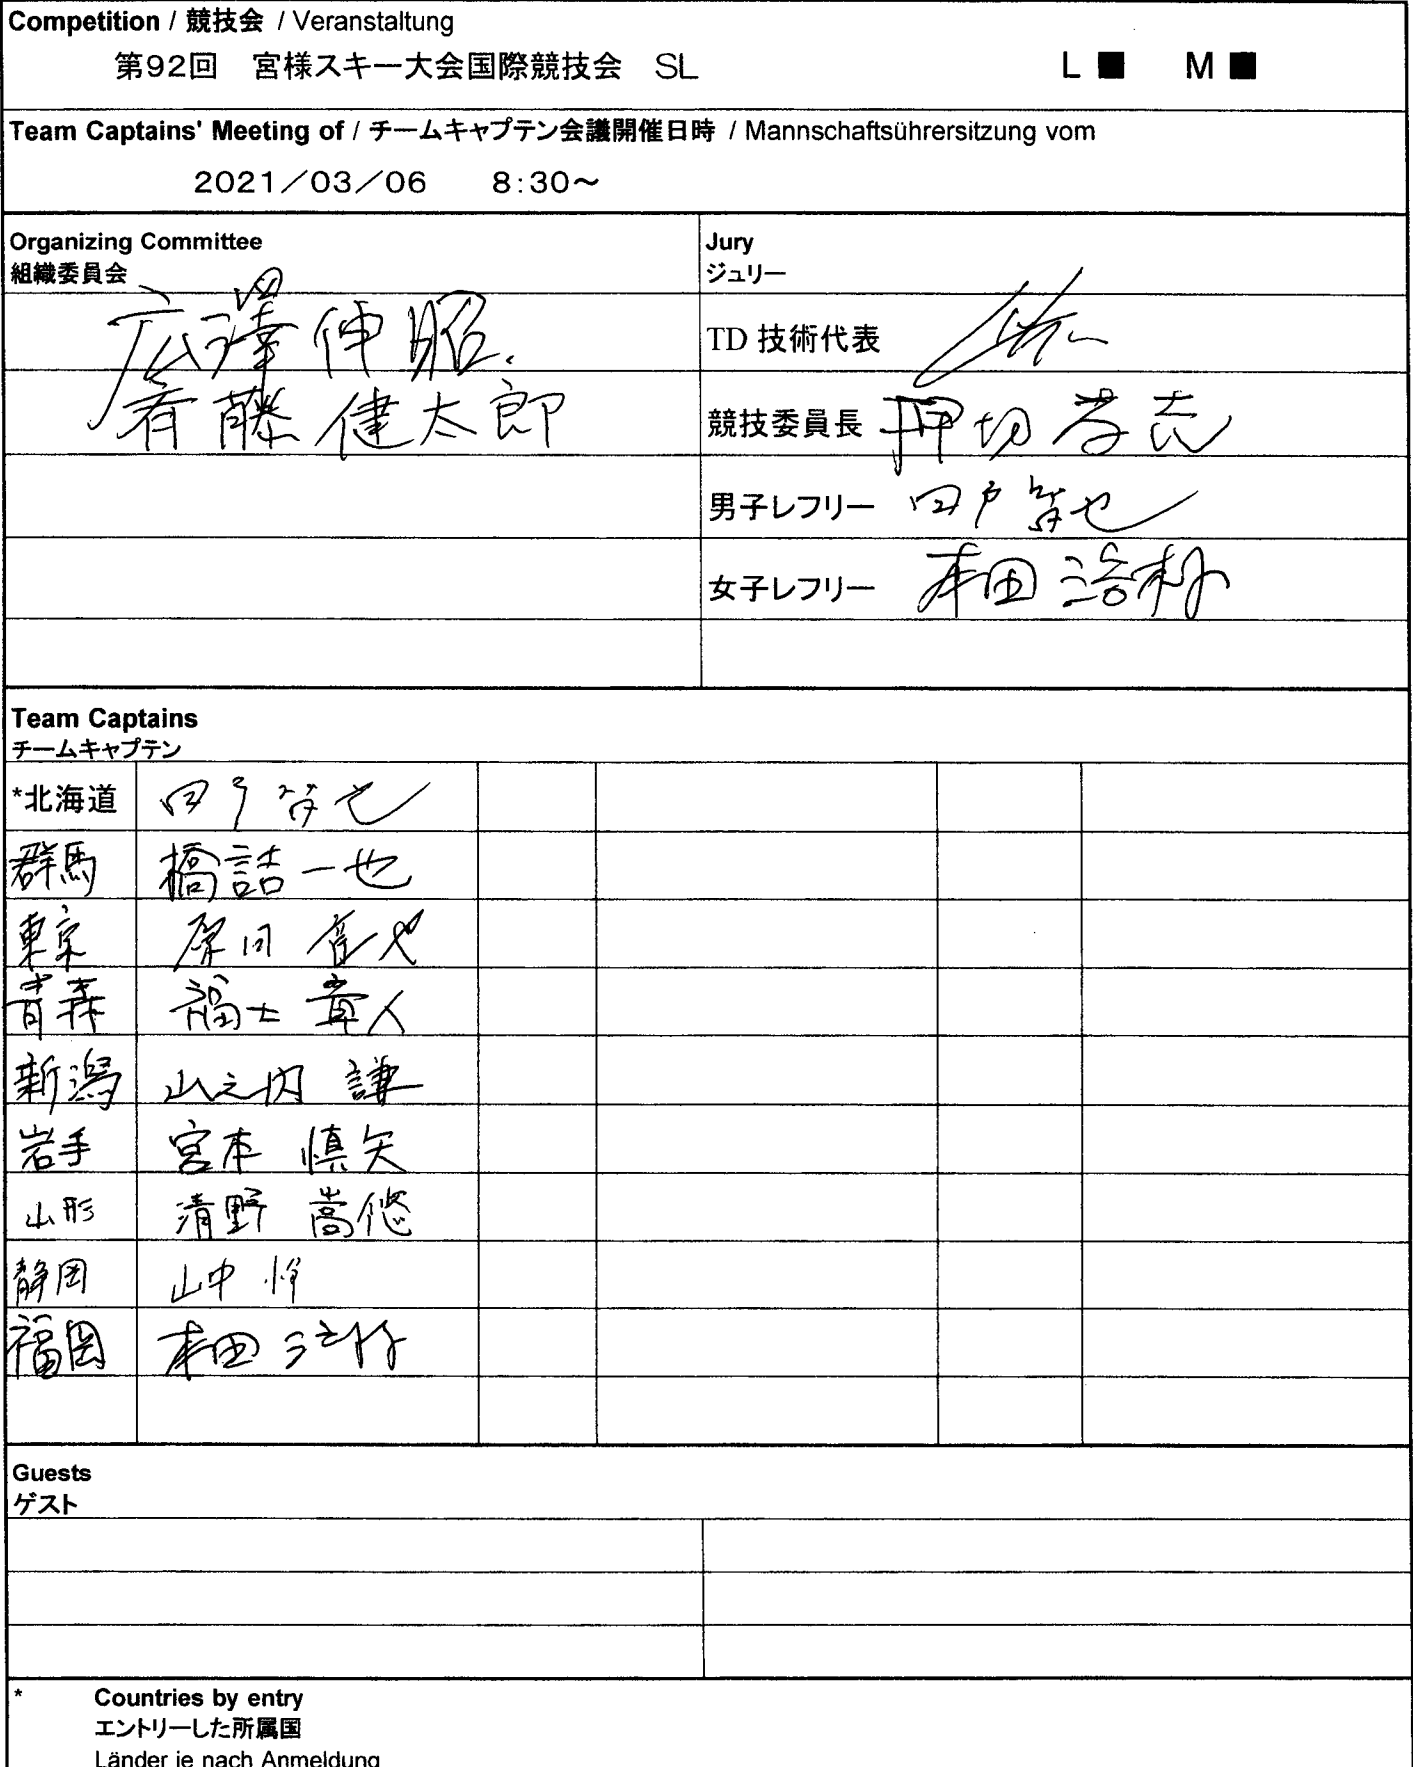 Competition / 競技会 / Veranstaltung
第92回 宮様スキー大会国際競技会 SL L ■ M ■
Team Captains' Meeting of / チームキャプテン会議開催日時 / Mannschaftsührersitzung vom
2021/03/06 8:30~
Organizing Committee
組織委員会
広澤 伸昭.
斉藤 健太郎
Jury
ジュリー
TD 技術代表
競技委員長 押切 孝志
男子レフリー 田戸 智也
女子レフリー 本田
Team Captains
チームキャプテン
*北海道 田戸 智也
群馬 橋詰 一也
東京 原田
青森 福士 章人
新潟 山之内 謙
岩手 宮本 慎矢
山形 清野 嵩悠
静岡 山中
福岡 本田
Guests
ゲスト
* Countries by entry
エントリーした所属国
Länder je nach Anmeldung